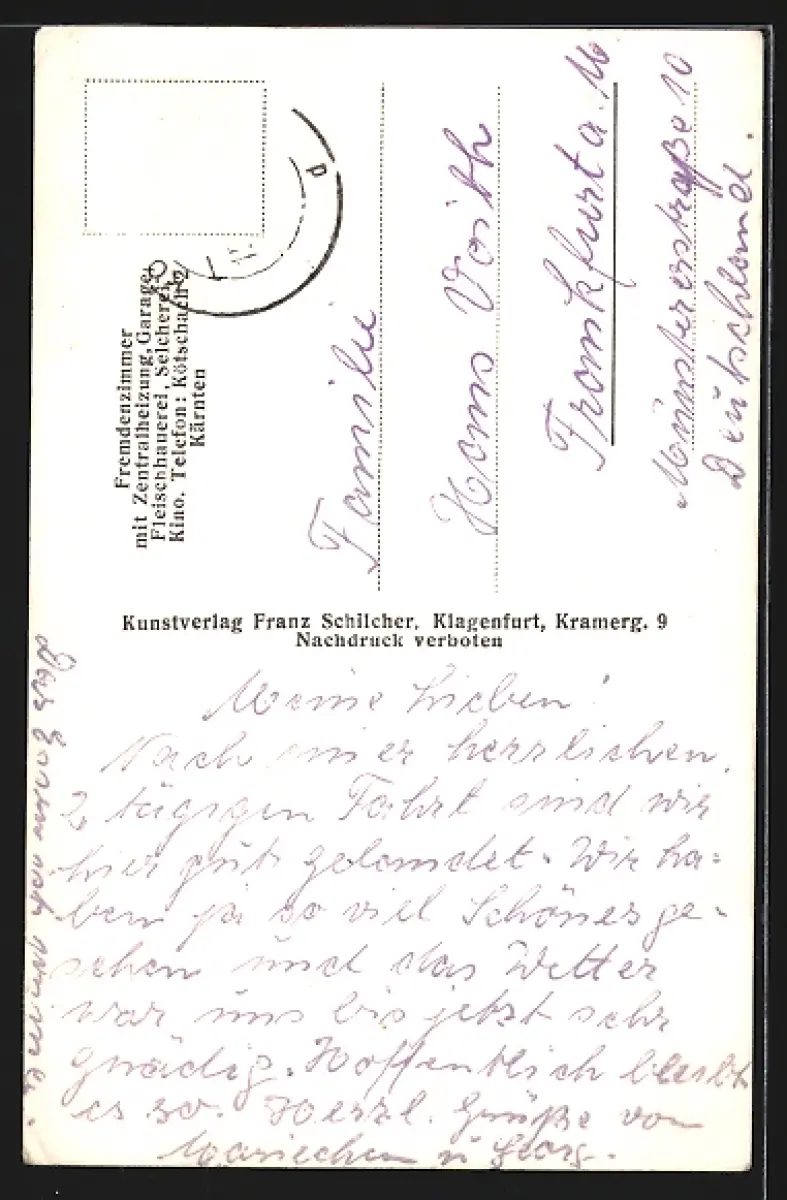 Fremdenzimmer
mit Zentralheizung, Garage,
Fleischhauerei, Selcherei,
Kino. Telefon: Kötschach 2
Kärnten
Familie
Hans Voith
Frankfurt a. M
Münsterstraße 10
Deutschland.
Kunstverlag Franz Schilcher, Klagenfurt, Kramerg. 9
Nachdruck verboten
Meine Lieben!
Nach einer herrlichen
2 tägigen Fahrt sind wir
hier gut gelandet. Wir ha=
ben ja so viel Schönes ge=
sehen und das Wetter
war uns bis jetzt sehr
gnädig. Hoffentlich bleibt
es so. Herzl. Grüße von
Mariechen u Georg.